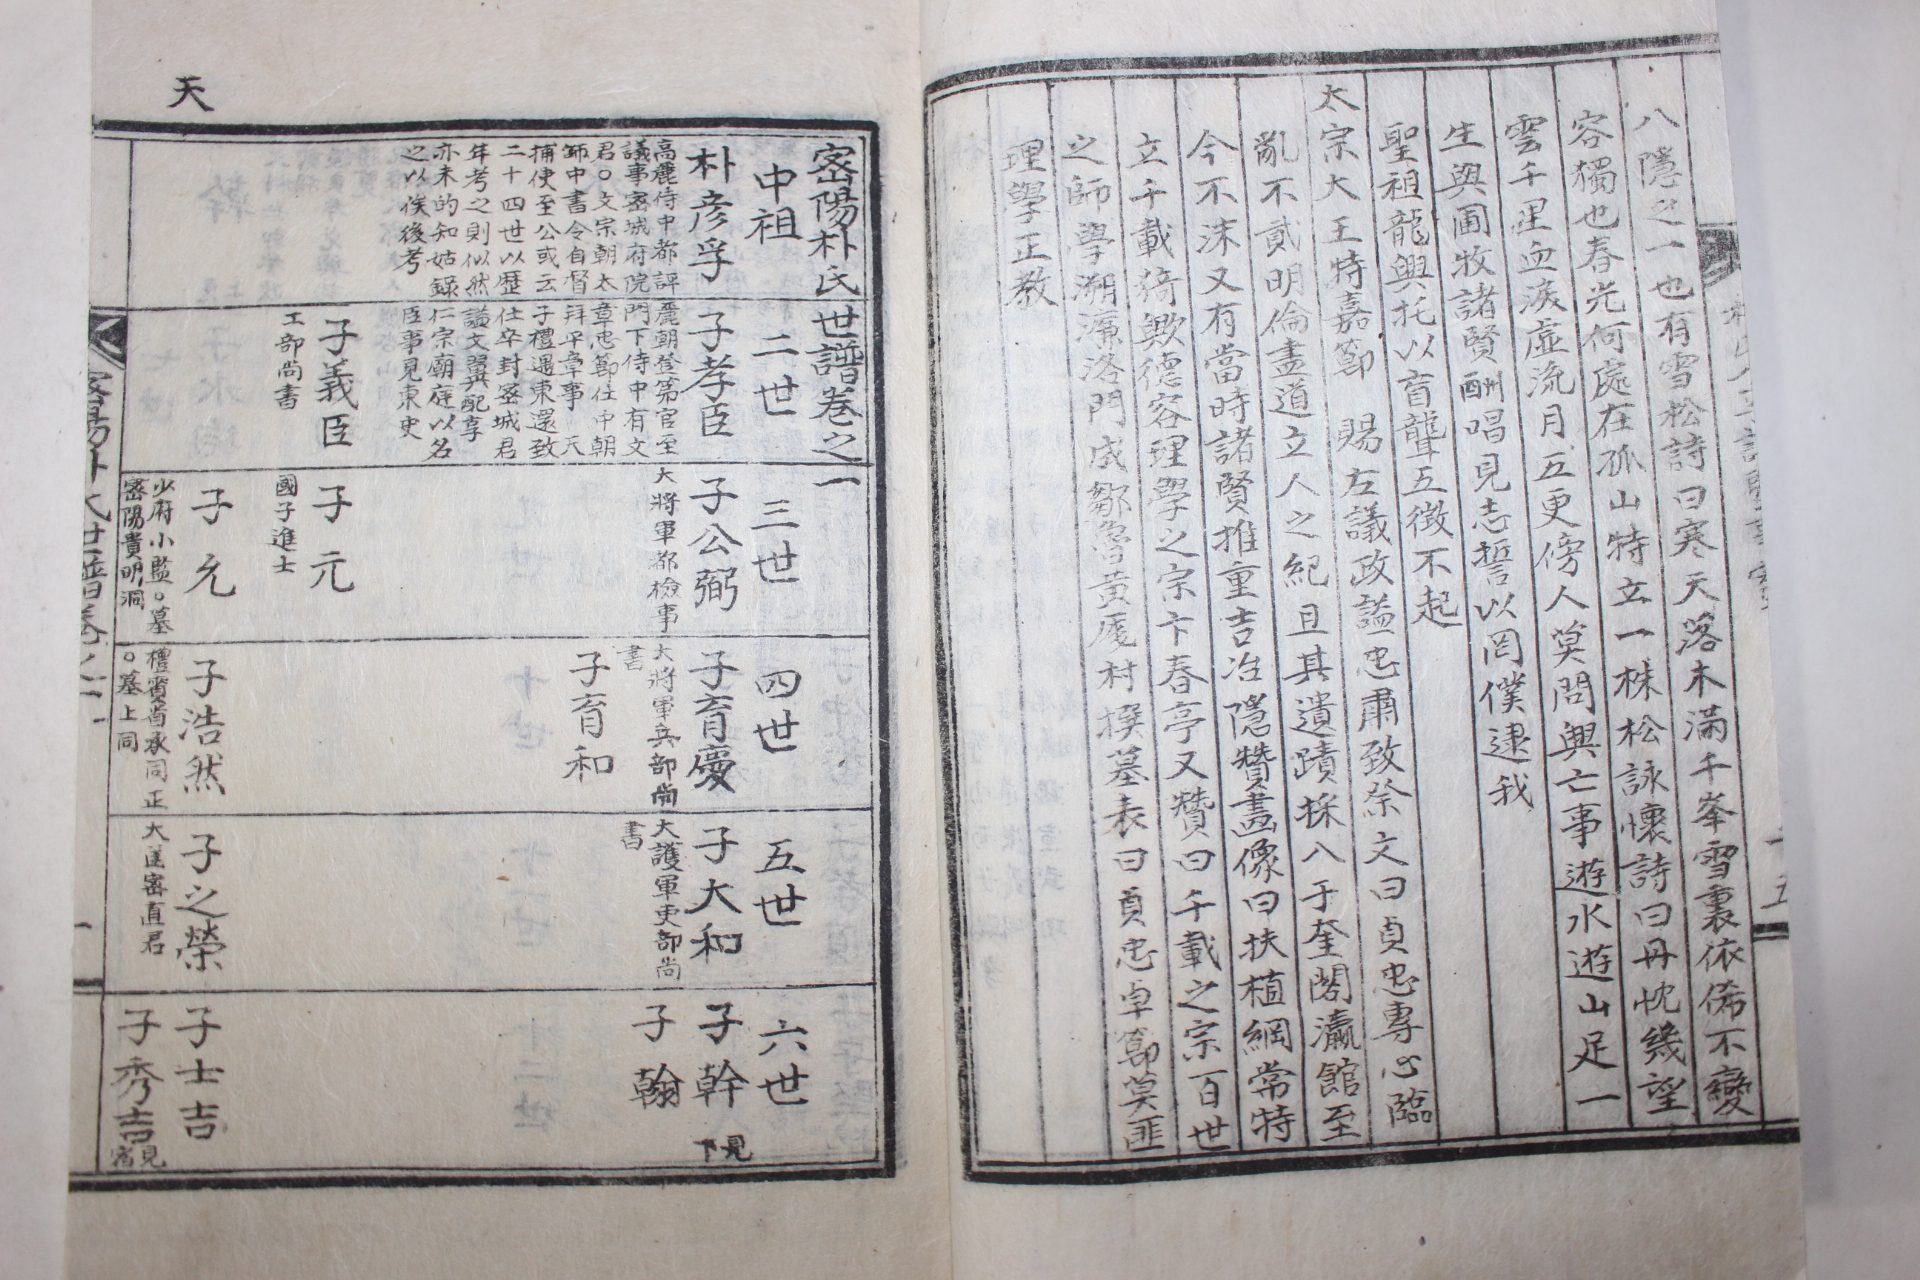 八隱之一也有雪松詩曰寒天落木滿千峯雪裏依俙不變
容獨也春光何處在孤山特立一株松詠懷詩曰丹忱幾望
雲千里血淚虛流月五更傍人莫問興亡事遊水遊山足一
生與圃牧諸賢酬唱見志誓以罔僕逮我
聖祖龍興托以盲聾五徵不起
太宗大王特嘉節 賜左議政謚忠肅致祭文曰貞忠專心臨
亂不貳明倫盡道立人之紀且其遺蹟採入于奎閣瀛館至
今不沫又有當時諸賢推重吉冶隱贊畵像曰扶植綱常特
立千載猗歟德容理學之宗卞春亭又贊曰千載之宗百世
之師學溯濂洛門成鄒魯黃厖村撰墓表曰貞忠卓節莫匪
理學正教
十五
天
密陽朴氏世譜卷之一
中祖 二世 三世 四世 五世 六世
朴彦孚
高麗侍中都評
議事密城府院
君○文宗朝太
師中書令自督
捕使至公或云
二十四世以歷
年考之則似然
亦未的知姑錄
之以俟後考
子孝臣
麗朝登第官至
門下侍中有文
章忠節仕中朝
拜平章事 天
子禮遇東還致
仕卒封密城君
謚文翼配享
仁宗廟庭以名
臣事見東史
子公弼
大將軍都檢事
子育慶
大將軍兵部尙
書
子大和
大護軍吏部尙
書
子幹
見下
子育和
子翰
子義臣
工部尙書
子元
國子進士
子允
少府小監○墓
密陽貴明洞
子浩然
檀賓尙承同正
○墓上同
子之榮
大匡密直君
子士吉
子秀吉
密陽朴氏世譜卷之一
一